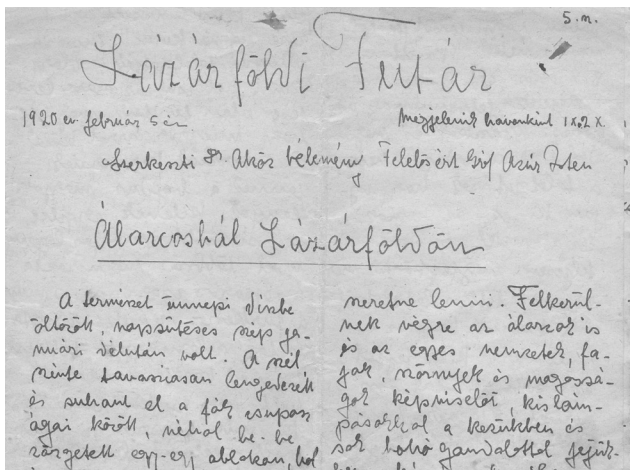 5. n.
Lázárföldi Futár
1920 év. február 5 én
Megjelenik havonkint 1 x. 2 x.
Szerkeszti gr. Akóz bélemény Felelősért Gróf Azúr Isten
Álarcosbál Lázárföldön
A természet ünnepi díszbe
öltözött, napsütéses szép ja-
nuári délután volt. A szél
szinte tavasziasan lengedezett
és suhant el a fák csupasz
ágai között, néhol be-be
zörgetett egy-egy ablakon, hol
szeretne lenni. Felkerül-
nek végre az álarcok is
és az egyes nemzetek, fa-
jok, szörnyek és magassá-
gok képviselői, kis lám-
pásokkal a kezükben és
sok bohó gondolattal fejük-